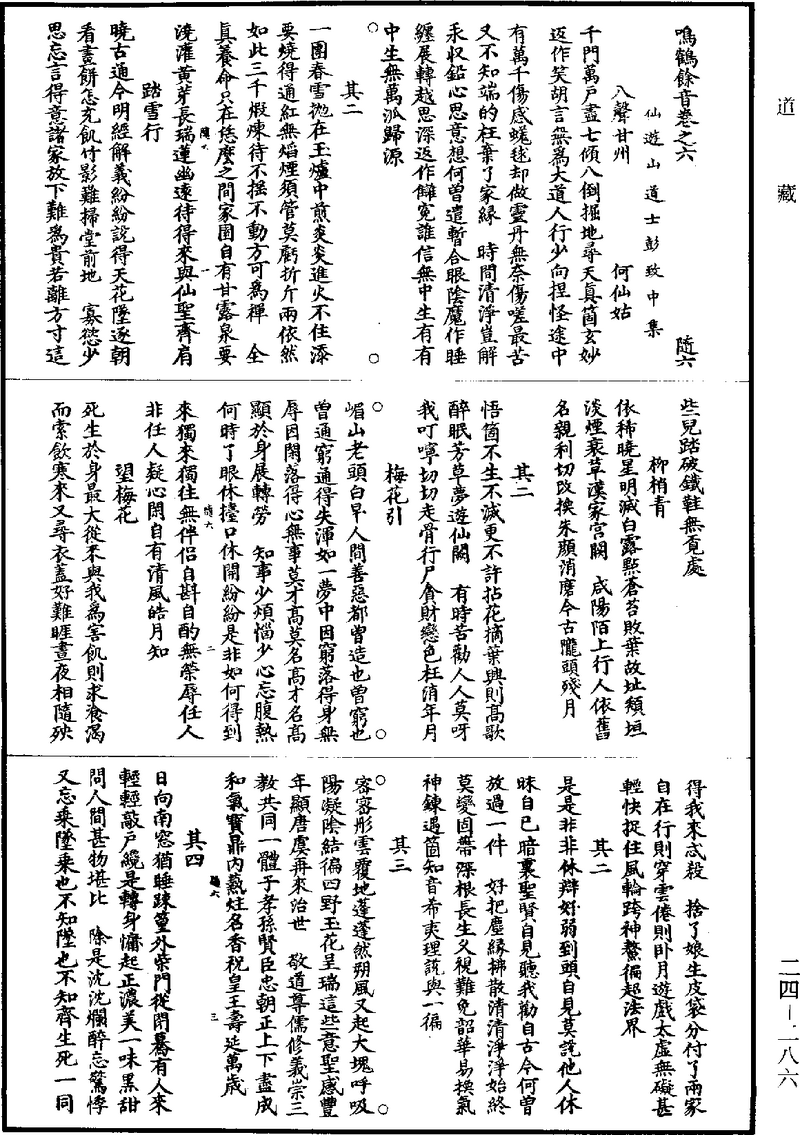 道藏
鳴鶴餘音卷之六　隨六
仙遊山道士彭致中集
八聲甘州　何仙姑
千門萬戶盡七傾八倒掘地尋天真箇玄妙
返作笑胡言無為大道人行少向捏怪途中
有萬千傷感蟣毬却做靈丹無奈傷嗟最苦
又不知端的枉棄了家緣　時間清淨豈解
汞收鉛心思意想何曾遣暫合眼陰魔作睡
纏展轉越思深返作讎寃誰信無中生有有
中生無萬派歸源
其二
一團春雪拋在玉爐中煎炎炎進火不住添
要燒得通紅無焰煙須管莫虧折斤兩依然
如此三千煅煉待不搖不動方可為禪　全
真養命只在恁麼之間家園自有甘露泉要
澆灌黃芽長瑞蓮幽遠待得來與仙聖齊肩
踏雪行
曉古通今明經解義紛紛說得天花墜逐朝
看畫餅怎充飢竹影難掃堂前地　寡慾少
思忘言得意諸家放下難為貴若離方寸這
些兒踏破鐵鞋無覓處
柳梢青
依稀曉星明滅白露點蒼苔敗葉故址頹垣
淡煙衰草漢家宮闕　咸陽陌上行人依舊
名親利切改換朱顏消磨今古隴頭殘月
其二
悟箇不生不滅更不許拈花摘葉興則高歌
醉眠芳草夢遊仙闕　有時苦勸人人莫呀
我叮嚀切切走骨行尸貪財戀色枉消年月
梅花引
嵋山老頭白早人間善惡都曾造也曾窮也
曾通窮通得失渾如一夢中因窮落得身無
辱因閑落得心無事莫才高莫名高才名高
顯於身展轉勞　知事少煩惱少心忘腹熱
何時了眼休擡口休開紛紛是非如何得到
來獨來獨往無伴侣自斟自酌無榮辱任人
非任人疑心閑自有清風皓月知
望梅花
死生於身最大從來與我為害飢則求飡渴
而索飲寒來又尋衣蓋好難睚晝夜相隨殃
得我來忒殺　捨了娘生皮袋分付了兩家
自在行則穿雲倦則卧月遊戲太虛無礙甚
輕快捉住風輪跨神鰲徧超法界
其二
是是非非休辯好弱到頭自見莫說他人休
昧自己暗裏聖賢自見聽我勸自古今何曾
放過一件　好把塵緣拂散清清淨淨始終
莫變固蔕深根長生久視難免韶華易換氣
神鍊遇箇知音希夷理說與一徧
其三
密密彤雲覆地蓬蓬然朔風又起大塊呼吸
陽凝陰結徧四野玉花呈瑞這些意聖感豐
年顯唐虞再來治世　敬道尊儒修義崇三
教共同一體子孝孫賢臣忠朝正上下盡成
和氣寶鼎內爇炷名香祝皇王壽延萬歲
其四
日向南窓猶睡踈篁外柴門從閉驀有人來
輕輕敲戶纔是轉身慵起正濃美一味黑甜
問人間甚物堪比　除是沈沈爛醉忘驚悸
又忘乘墜乘也不知墜也不知齊生死一同
隨六　一
隨六　二
隨六　三
二四－二八六